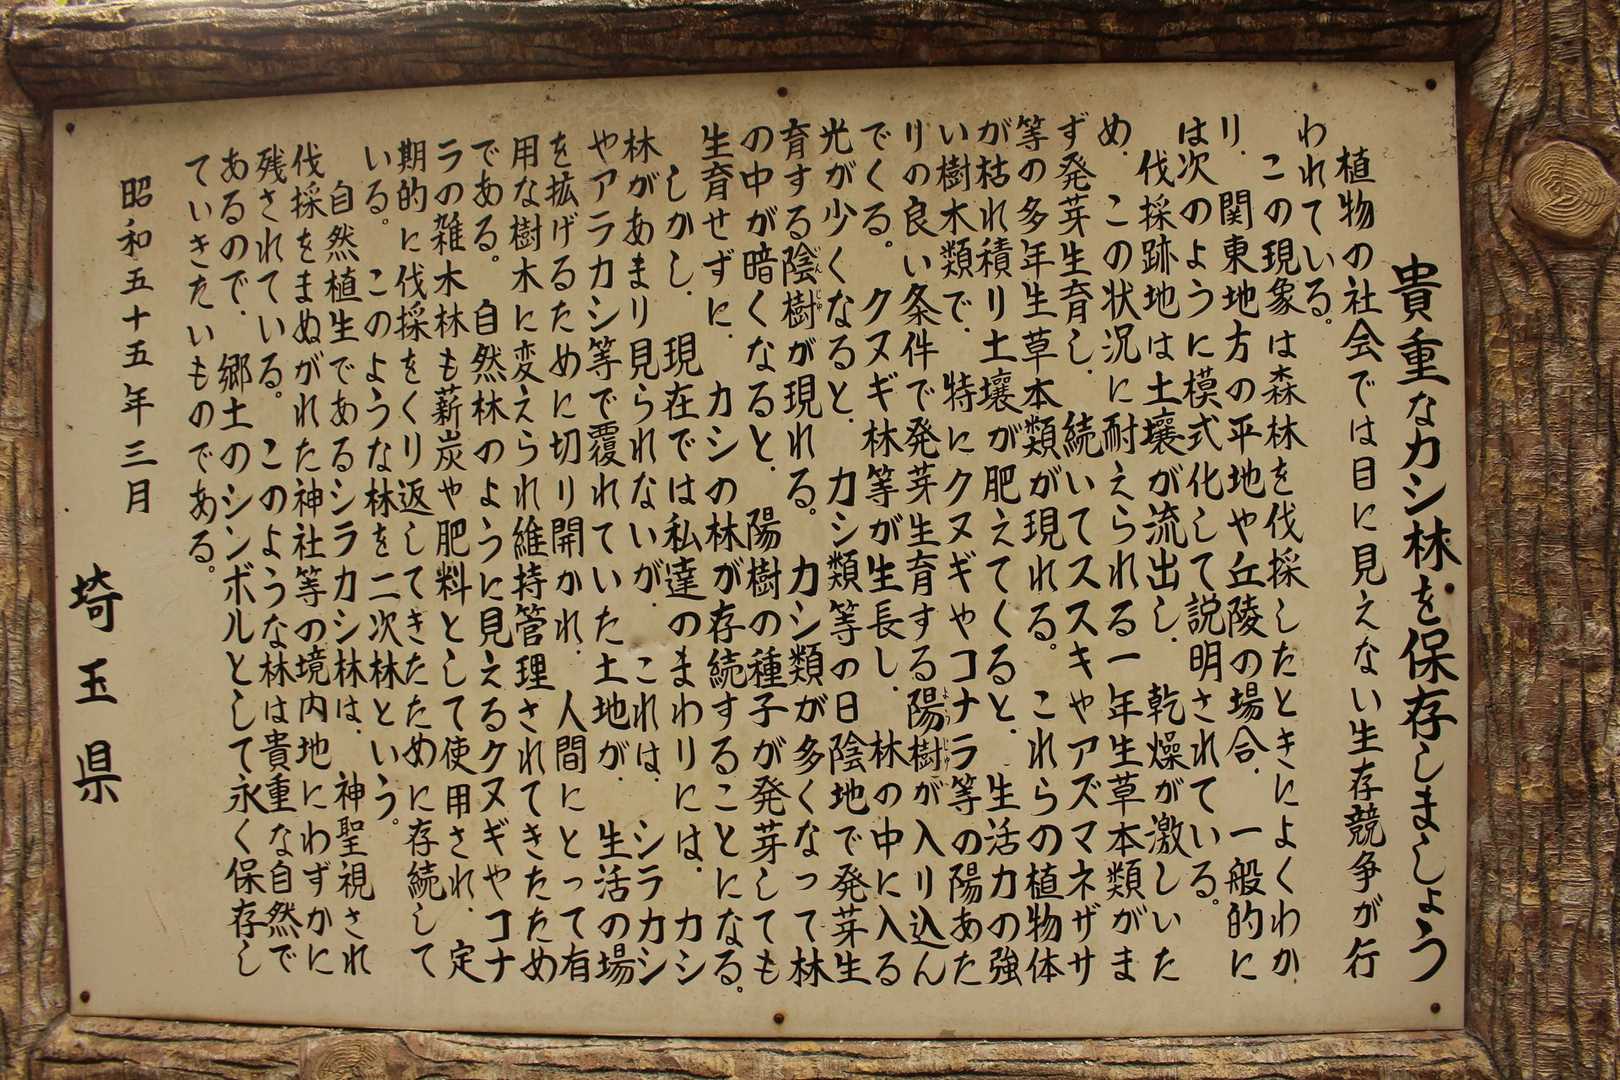 貴重なカシ林を保存しましょう
植物の社会では目に見えない生存競争が行
われている。
この現象は森林を伐採したときによくわか
り、関東地方の平地や丘陵の場合、一般的に
は次のように模式化して説明されている。
伐採跡地は土壌が流出し、乾燥が激しいた
め、この状況に耐えられる一年生草本類がま
ず発芽生育し、続いてススキやアズマネザサ
等の多年生草本類が現れる。これらの植物体
が枯れ積り土壌が肥えてくると、生活力の強
い樹木類で、特にクヌギやコナラ等の陽あた
りの良い条件で発芽生育する陽樹が入り込ん
でくる。クヌギ林等が生長し、林の中に入る
光が少くなると、カシ類等の日陰地で発芽生
育する陰樹が現れる。カシ類が多くなって林
の中が暗くなると、陽樹の種子が発芽しても
生育せずに、カシの林が存続することになる。
しかし、現在では私達のまわりには、カシ
林があまり見られないが、これは、シラカシ
やアラカシ等で覆れていた土地が、生活の場
を拡げるために切り開かれ、人間にとって有
用な樹木に変えられ維持管理されてきたため
である。自然林のように見えるクヌギやコナ
ラの雑木林も薪炭や肥料として使用され、定
期的に伐採をくり返してきたために存続して
いる。このような林を二次林という。
自然植生であるシラカシ林は、神聖視され
伐採をまぬがれた神社等の境内地にわずかに
残されている。このような林は貴重な自然で
あるので、郷土のシンボルとして永く保存し
ていきたいものである。
昭和五十五年三月
埼玉県